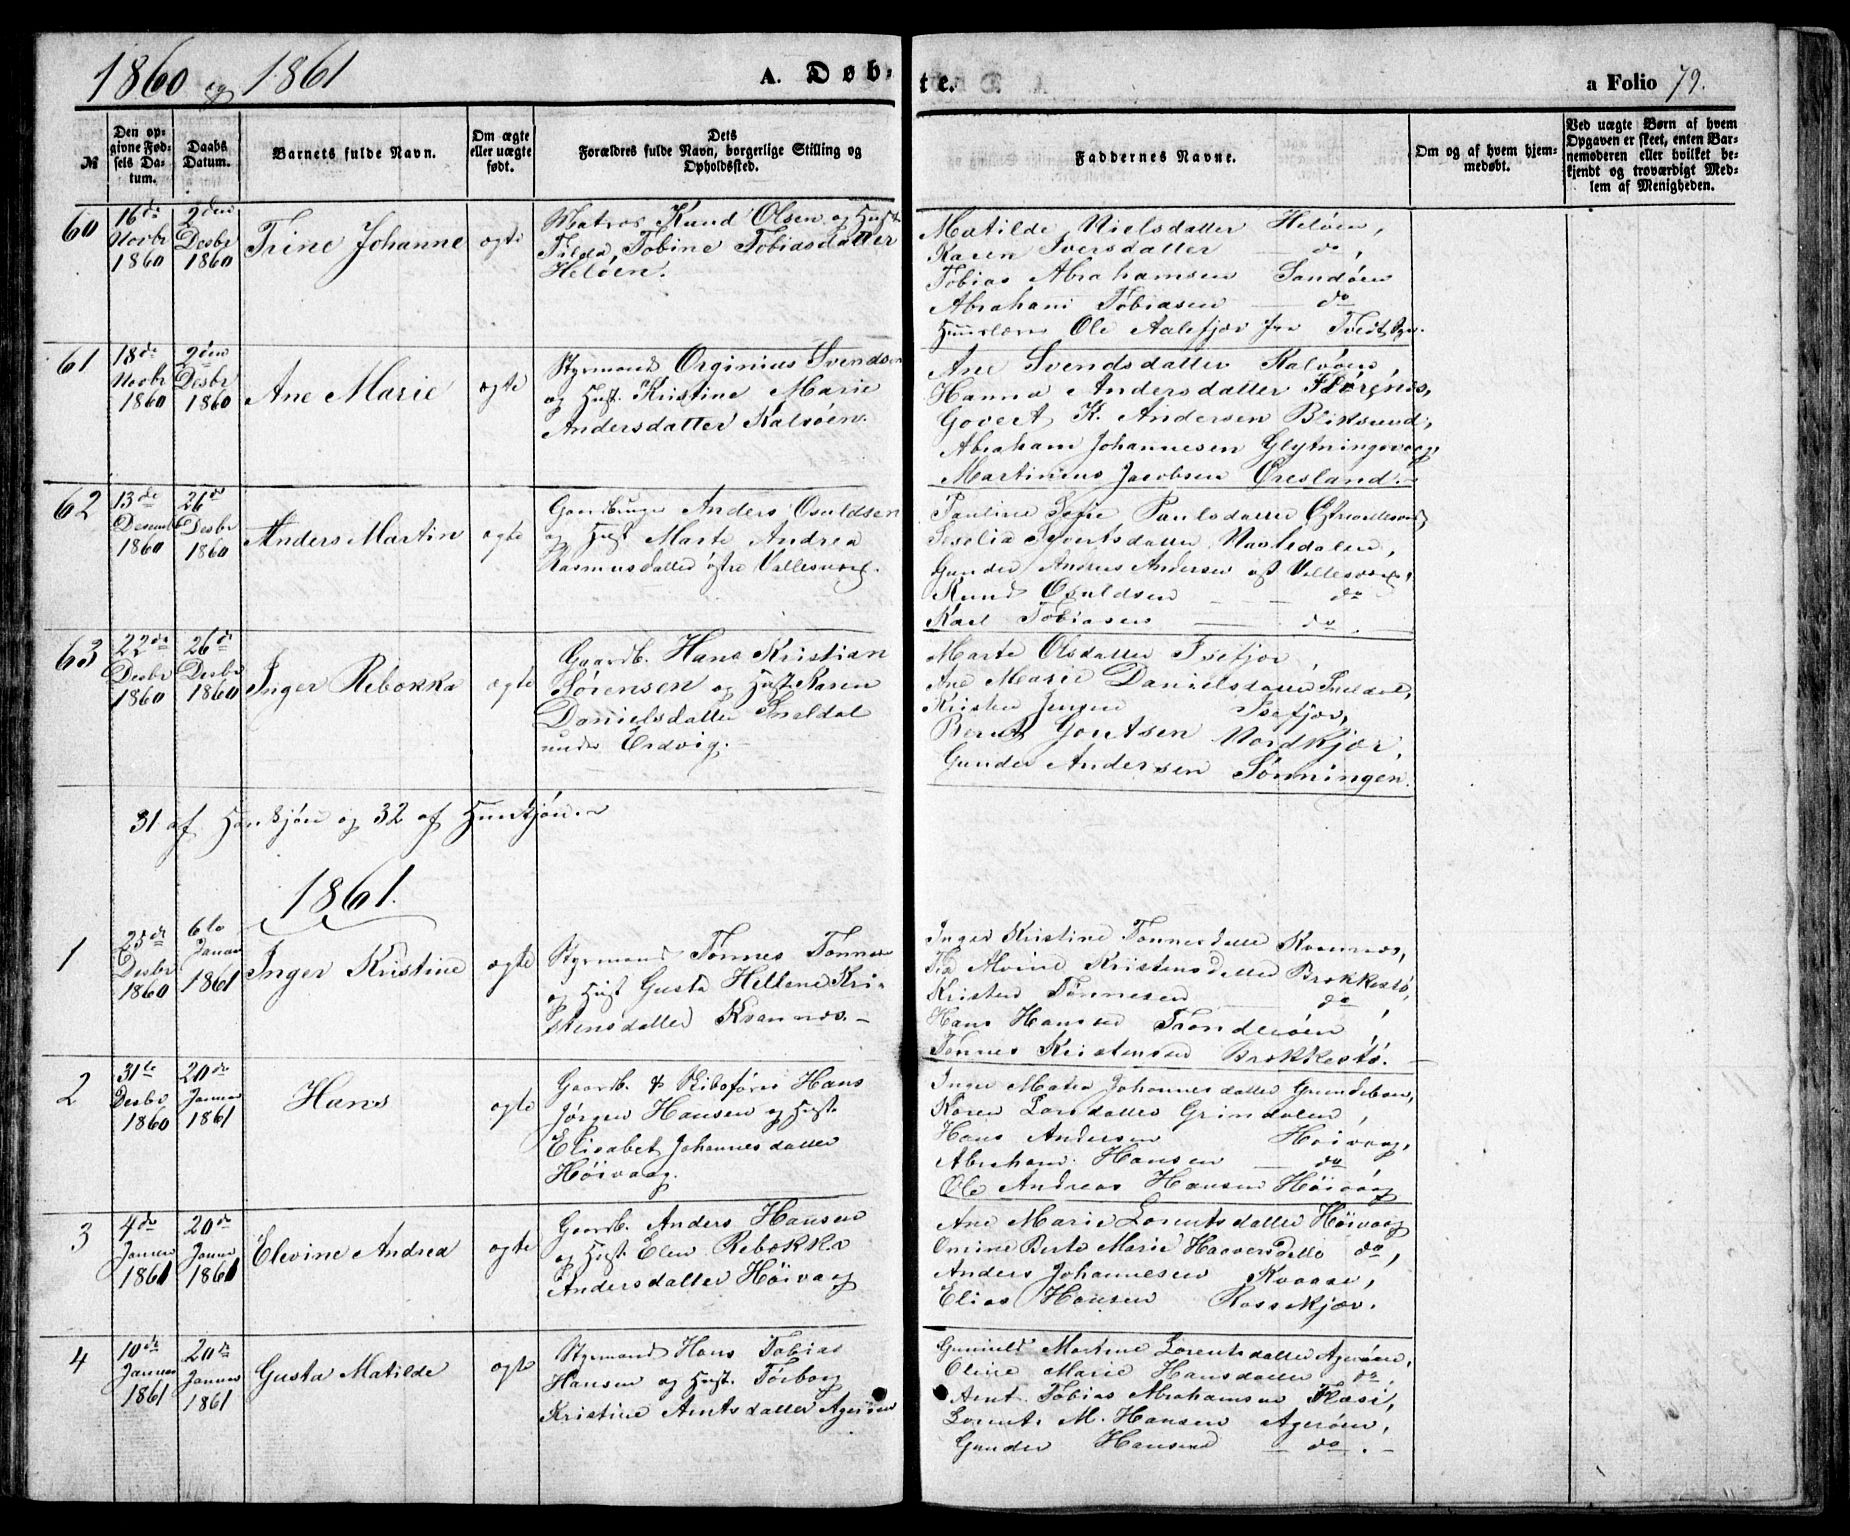 1860 og 1861
A. Døb-
te.
a Folio 79.
№
Den op-
givne Fød-
sels Da-
tum.
Daabs
Datum.
Barnets fulde Navn.
Om ægte
eller uægte
født.
Dets
Forældres fulde Navn, borgerlige Stilling og
Opholdssted.
Faddernes Navne.
Om og af hvem hjem-
medøbt.
Ved uægte Børn af hvem
Opgaven er skeet, enten Bar-
nemoderen eller hvilket be-
kjendt og troværdigt Med-
lem af Menigheden.
60
16de
Novbr
1860
2den
Desbr
1860
Trine Johanne
ægte
Matros Knud Olsen og Hust
Tilda Tobine Tobiasdatter
Heløen.
Matilde Nielsdatter Heløen,
Karen Iversdatter do,
Tobias Abrahamsen Sandøen
Abraham Tobiasen do
Ole Aalefjær
61
18de
Novbr
1860
2den
Desbr
1860
Ane Marie
ægte
Styrmand Orginius Svendsen
og Hust. Kristine Marie
Andersdatter Kalvøen.
Ane Svendsdatter Kalvøen,
Hanna Andersdatter
Govert K. Andersen Bliksund,
Abraham Johannesen Glytningsvaag,
Martinius Jacobsen Øresland.
62
13de
Desembr
1860
26de
Desbr
1860
Anders Martin
ægte
Gaardbruger Anders Osuldsen
og Hust Marte Andrea
Rasmusdatter østre Vallesværd.
Pauline Sofie Paulsdatter
Sivertsdatter
Gunder Andreas Andersen øst Vallesværd,
Knud Osuldsen do
Karl Tobiasen do.
63
22de
Desbr
1860
26de
Desbr
1860
Inger Rebokka
ægte
Gaardb. Hans Kristian
Sørensen og Hust Karen
Danielsdatter Sneldal
under Erdvig.
Marte Olsdatter Isefjær,
Ane Marie Danielsdatter Sneldal,
Kristen Jensen Isefjær,
Bernt Gontsen Nordkjær,
Gunder Andersen Sønningen.
31 af Hankjøn og 32 af Hunkjøn.
1861.
1
23de
Desbr
1860
6te
Januar
1861
Inger Kristine
ægte
Styrmand Tønnes Tønnes
og Hust Gusta Hellene Kri-
stensdatter Kvannes.
Inger Kristine Tønnesdatter Kvannes,
Alvine Kristensdatter Brekkestø,
Kristen Tønnesen do,
Hans Hansen Trondeøen,
Tønnes Kristensen Brekkestø.
2
31te
Desbr
1860
20de
Januar
1861
Hans
ægte
Gaardb. & Skibsfører Hans
Jørgen Hansen og Hust.
Elisabet Johannesdatter
Høivaag.
Inger Johannesdatter
Karen Larsdatter Grimdalen,
Hans Andersen Høivaag,
Abraham Hansen do
Ole Andreas Hansen Høivaag
3
4de
Januar
1861
20de
Januar
1861
Elevine Andrea
ægte
Gaardb. Anders Hansen
og Hust. Elen Rebokka
Andersdatter Høivaag
Ane Marie Lorentsdatter Høivaag
Omine Berte Marie Haaversdatter do,
Anders Johannesen Kvaase,
Elias Hansen Rossekjær.
4
10de
Januar
1861
20de
Januar
1861
Gusta Matilde
ægte
Styrmand Hans Tobias
Hansen og Hust. Torborg
Kristine Arntsdatter Agerøen
Gunnild Martine Lorentsdatter Agerøen,
Oline Marie Hansdatter do,
Arnt Tobias Abrahamsen
Lorents M. Hansen Agerøen,
Gunder Hansen do.